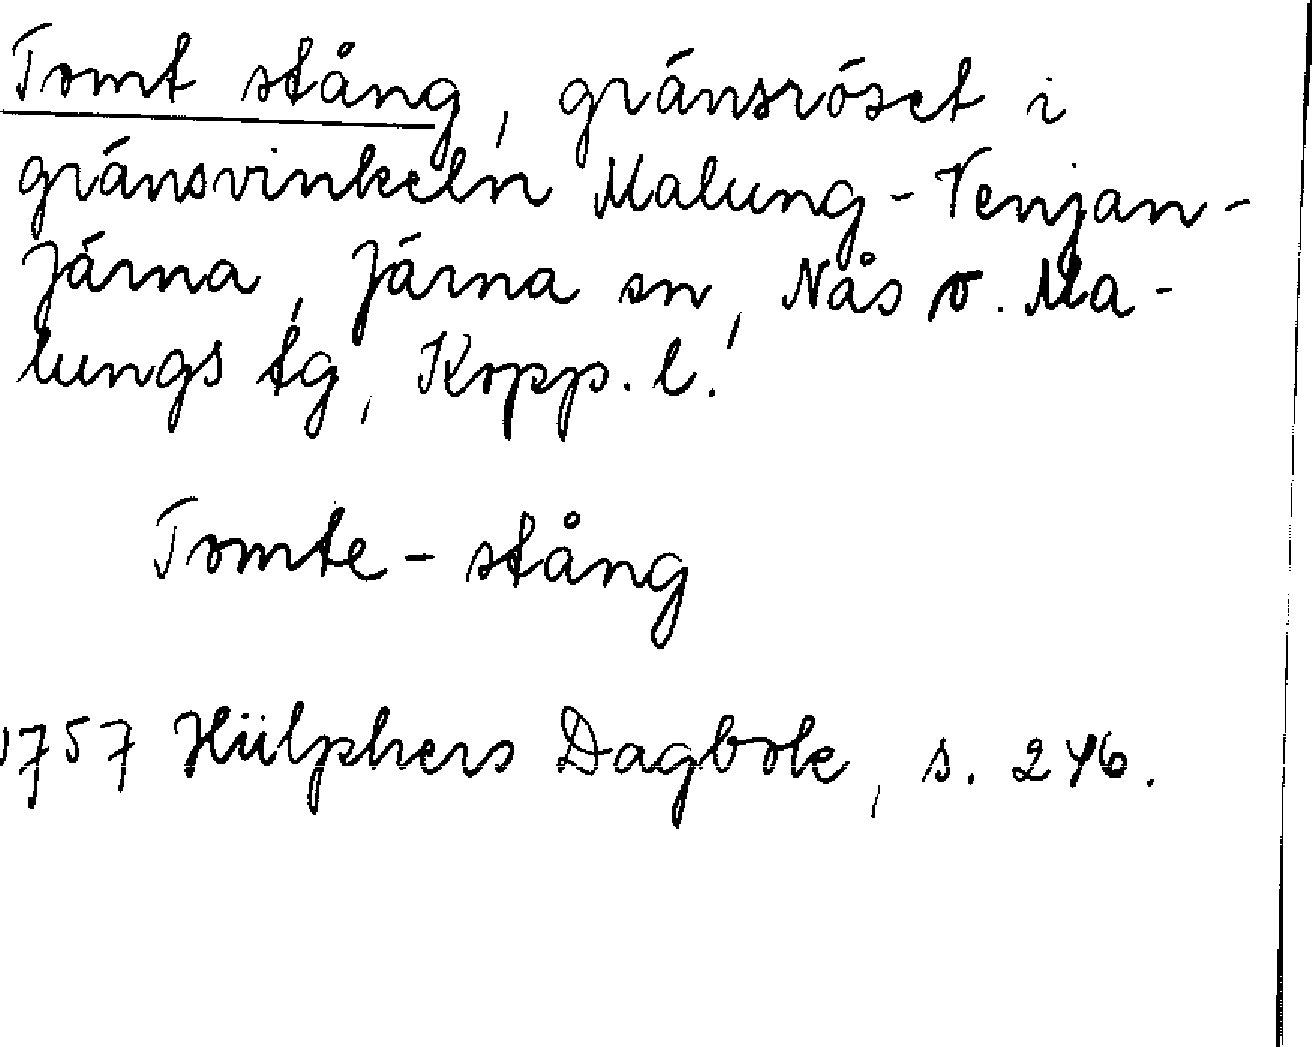 Tomt stång, gränsröset i
gränsvinkeln Malung-Venjan-
Järna, Järna sn, Nås o. Ma-
lungs tg, Kopp. l.
Tomte-stång
1757 Hülphers Dagbok, s. 246.